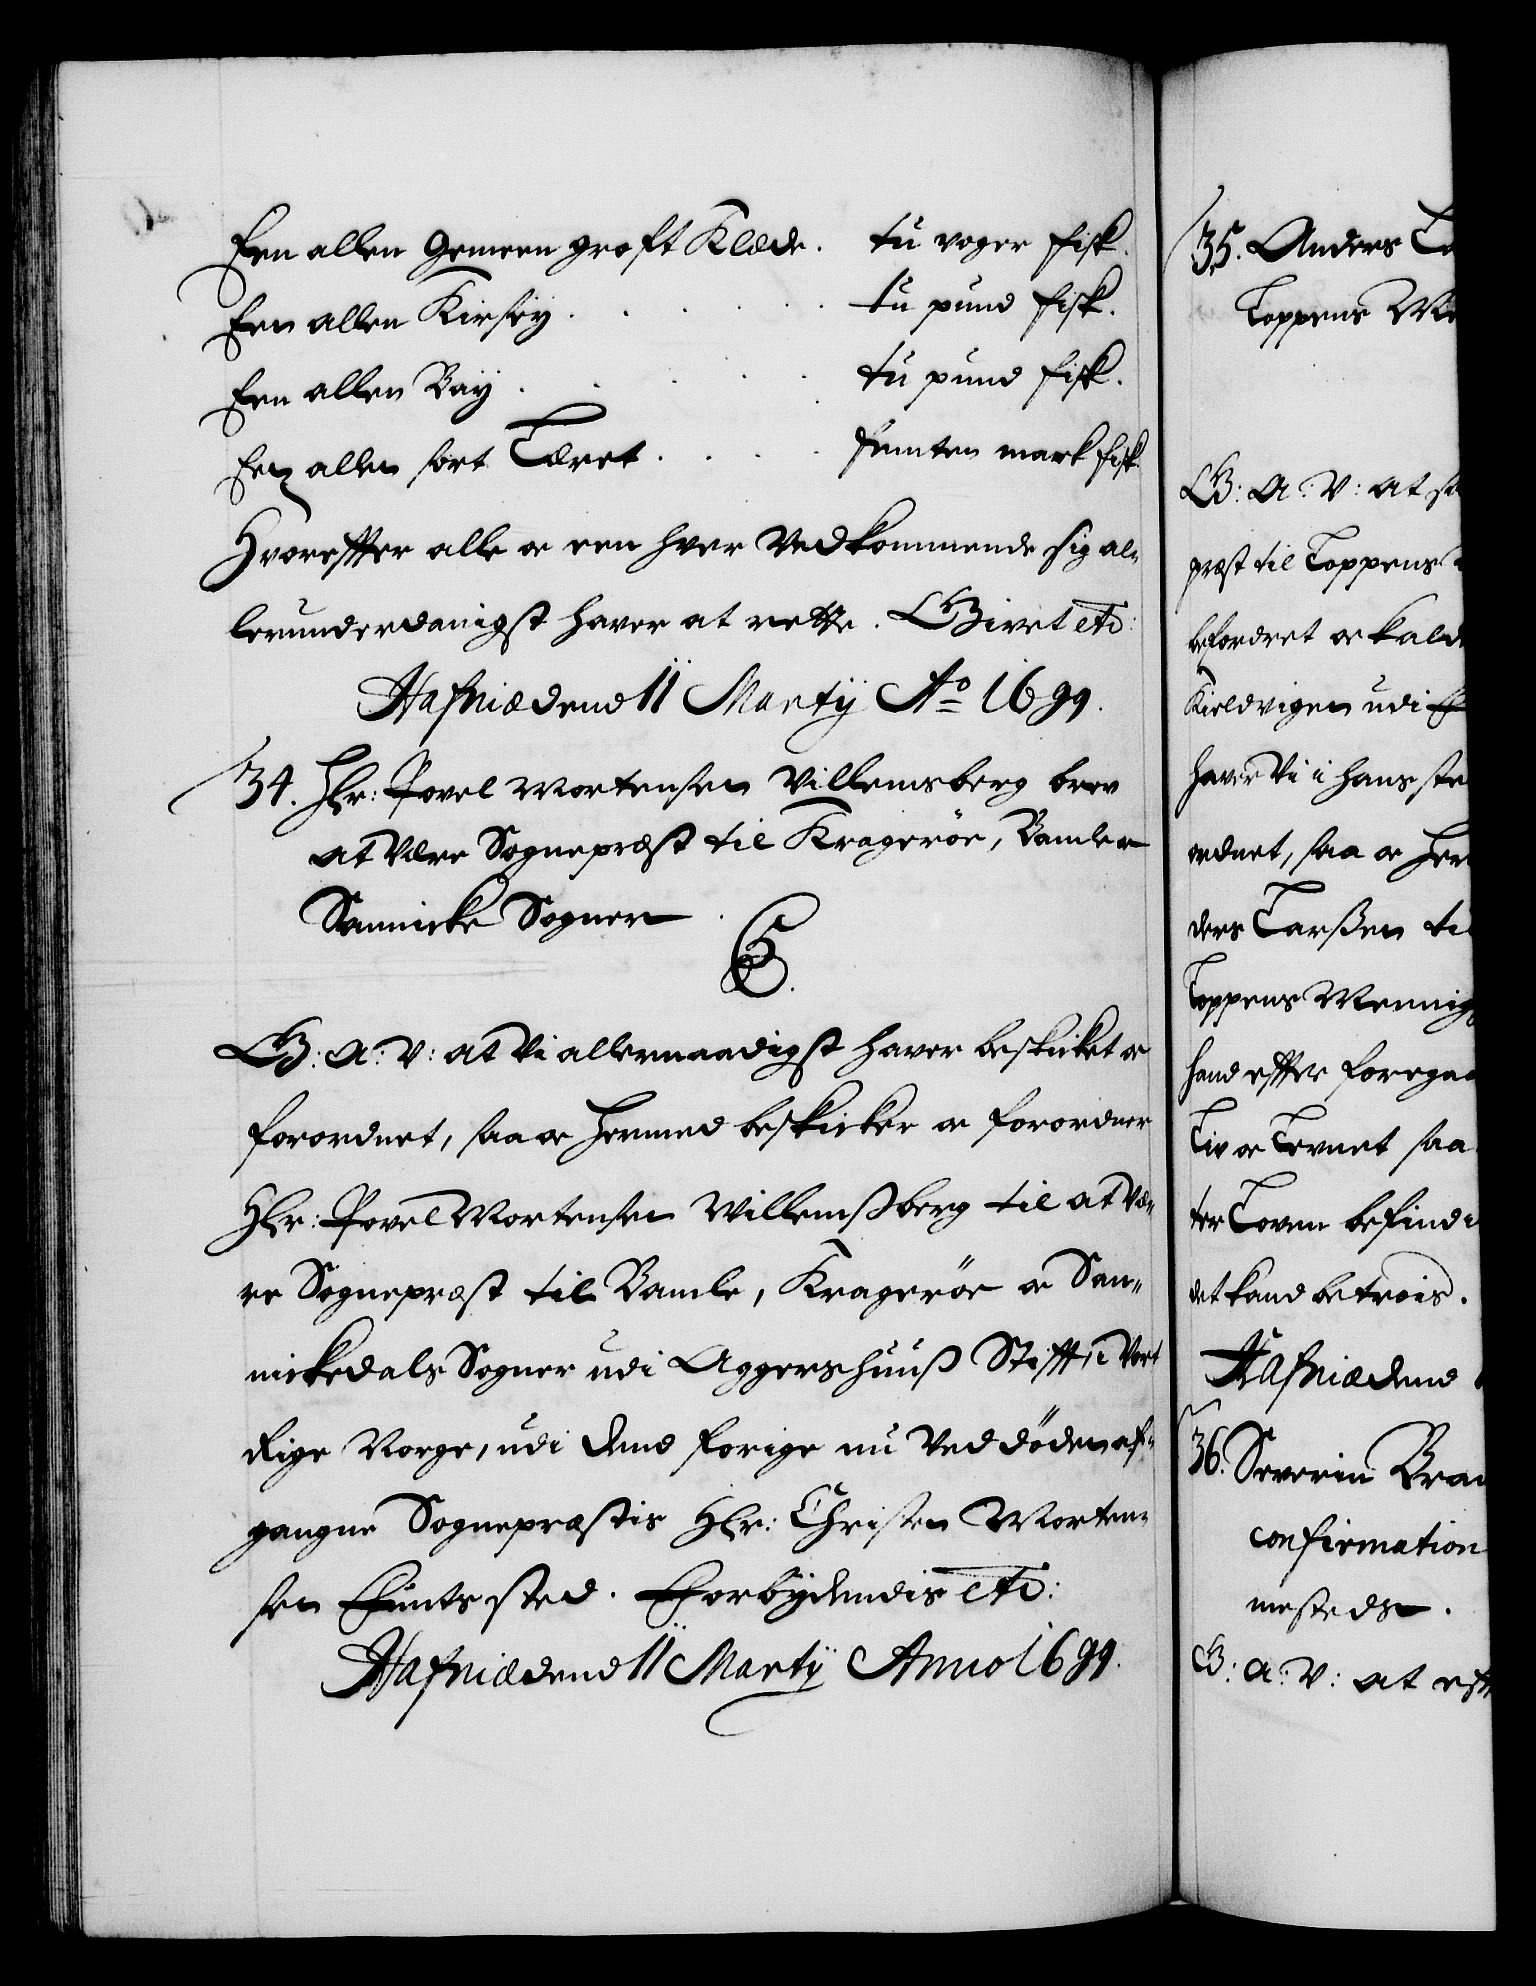 Een allen Gemeen groft Klæde. tu voger fisk.
Een allen Kirsey . . . . tu pund fisk.
Een allen Bay . . . . . tu pund fisk.
Een allen sort Læret . . . . femten mark fisk.
Hvorefter alle oc een hver Vedkommende sig al-
lerunderdanigst haver at rette. Givet etc:
Hafniæ dend 11 Martij Ao 1699.
34. Hr: Povel Mortensen Villemsberg brev
at Være Sognepræst til Kragerøe, Bamle oc
Sannicke Sogner
C5.
G: A: V: at Vi allernaadigst haver beskicket oc
forordnet, saa oc hermed beskicker oc forordner
Hr: Povel Mortensen Willemsßberg til at Væ-
re Sognepræst til Bamle, Kragerøe oc San-
nickedals Sogner udi Aggershuuß Stifft, i Vort
Rige Norge, udi dend forige nu Ved døden af-
gangne Sognepræstis Hr: Christen Morten-
sen sted. Forbydendis etc:
Hafniæ dend 11 Martij Anno 1699.
35. Anders
Toppens
G: A: V: at
præst til Toppens
befordret oc kald
Kieldvigen udi
haver Vi i hans ste
ordnet, saa oc her
ders Larßen ti
Toppens Mennig
hand effter forega
Liv oc Levnet saa
ter Loven befind
det kand betrois.
Hafniæ dend
36. Severin
confirmation
mesteds
G: A: V: at eft